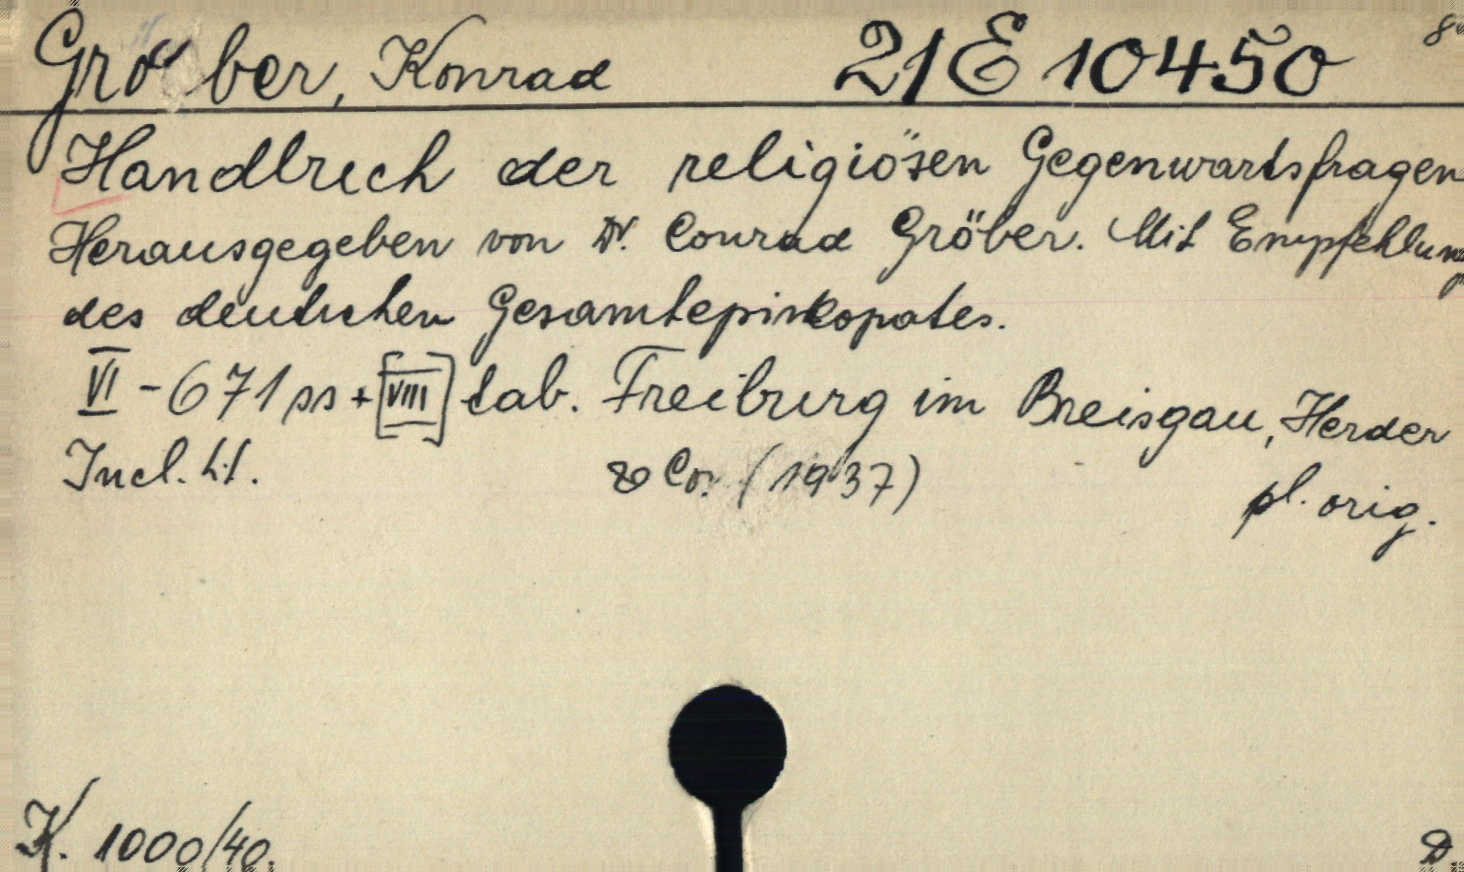 Gröber, Konrad 21 E 10450 8°
Handbuch der religiösen Gegenwartsfragen
Herausgegeben von Dr. Conrad Gröber. Mit Empfehlung
des deutschen Gesamtepiskopates.
VI - 671 ss + [VIII] tab. Freiburg im Breisgau, Herder
Incl. lit. & Co. (1937) pl. orig.
K. 1000/40. D.